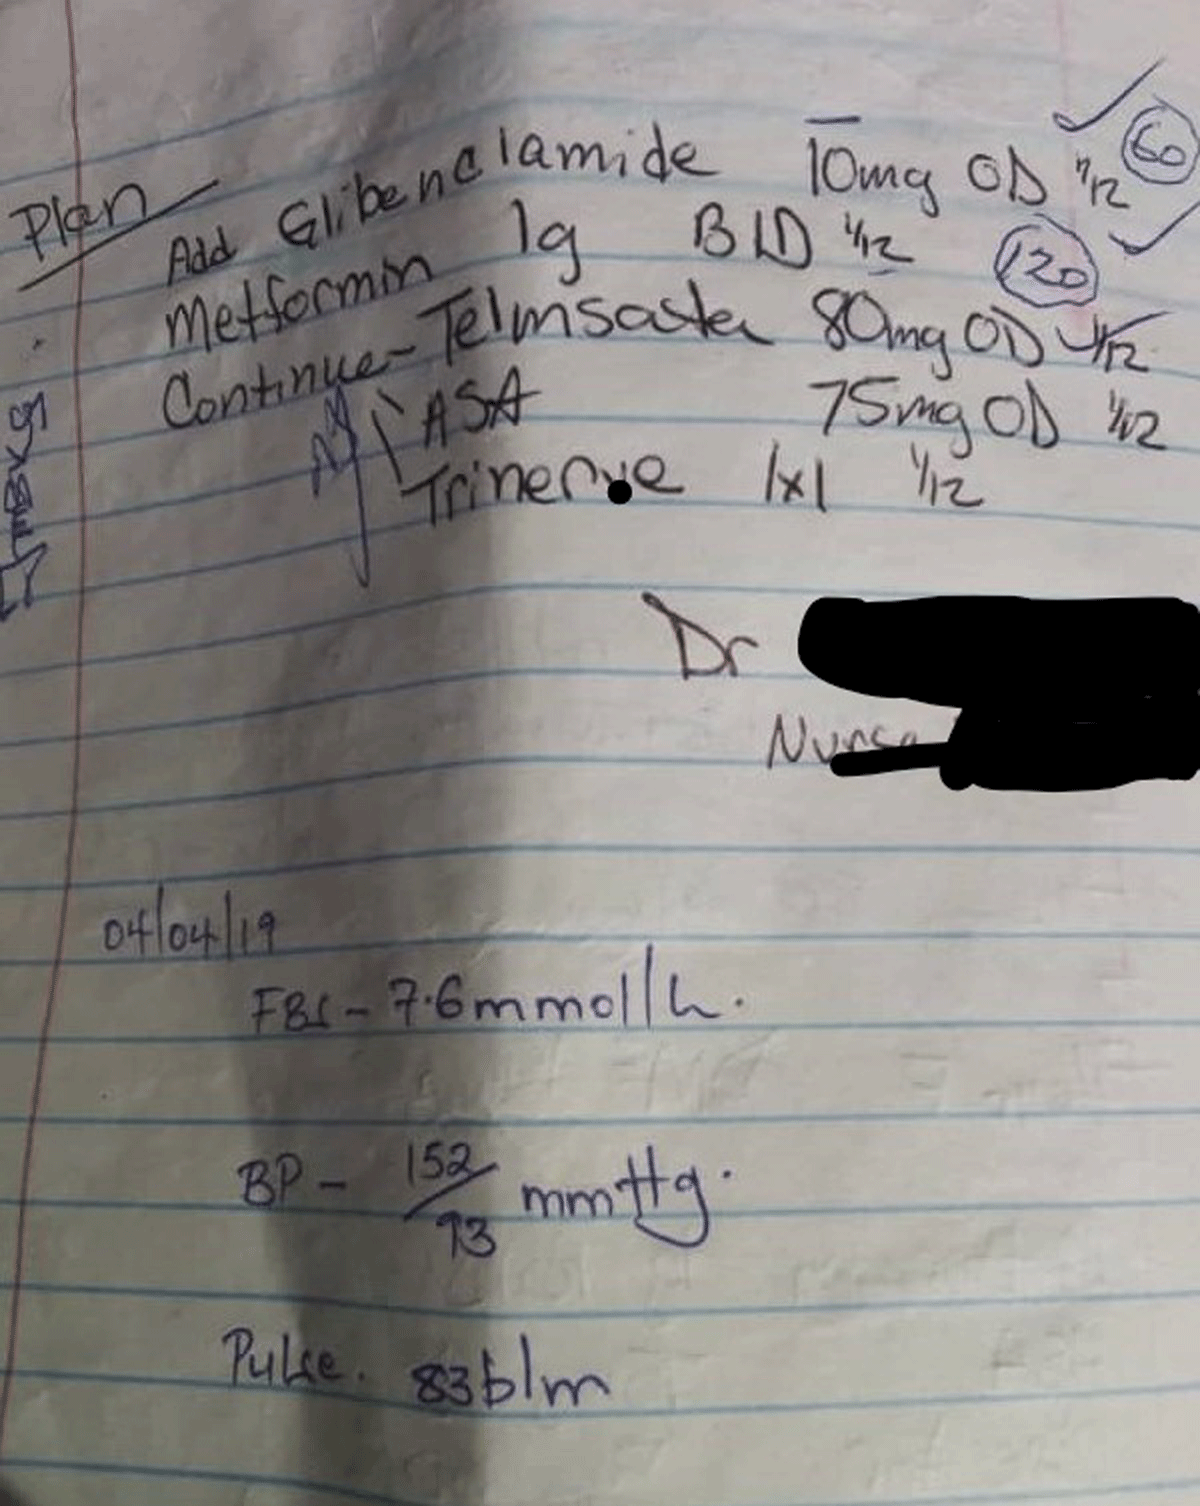 Plan
Add Glibenclamide 10mg OD 1/12 60
Metformin 1g BID 1/12 120
Continue - Telmsarta 80mg OD 1/12
ASA 75mg OD 1/12
Trinerve 1x1 1/12
Dr
Nurse
04/04/19
FBS - 7.6mmol/L.
BP - 152/93 mmHg.
Pulse. 83b/m